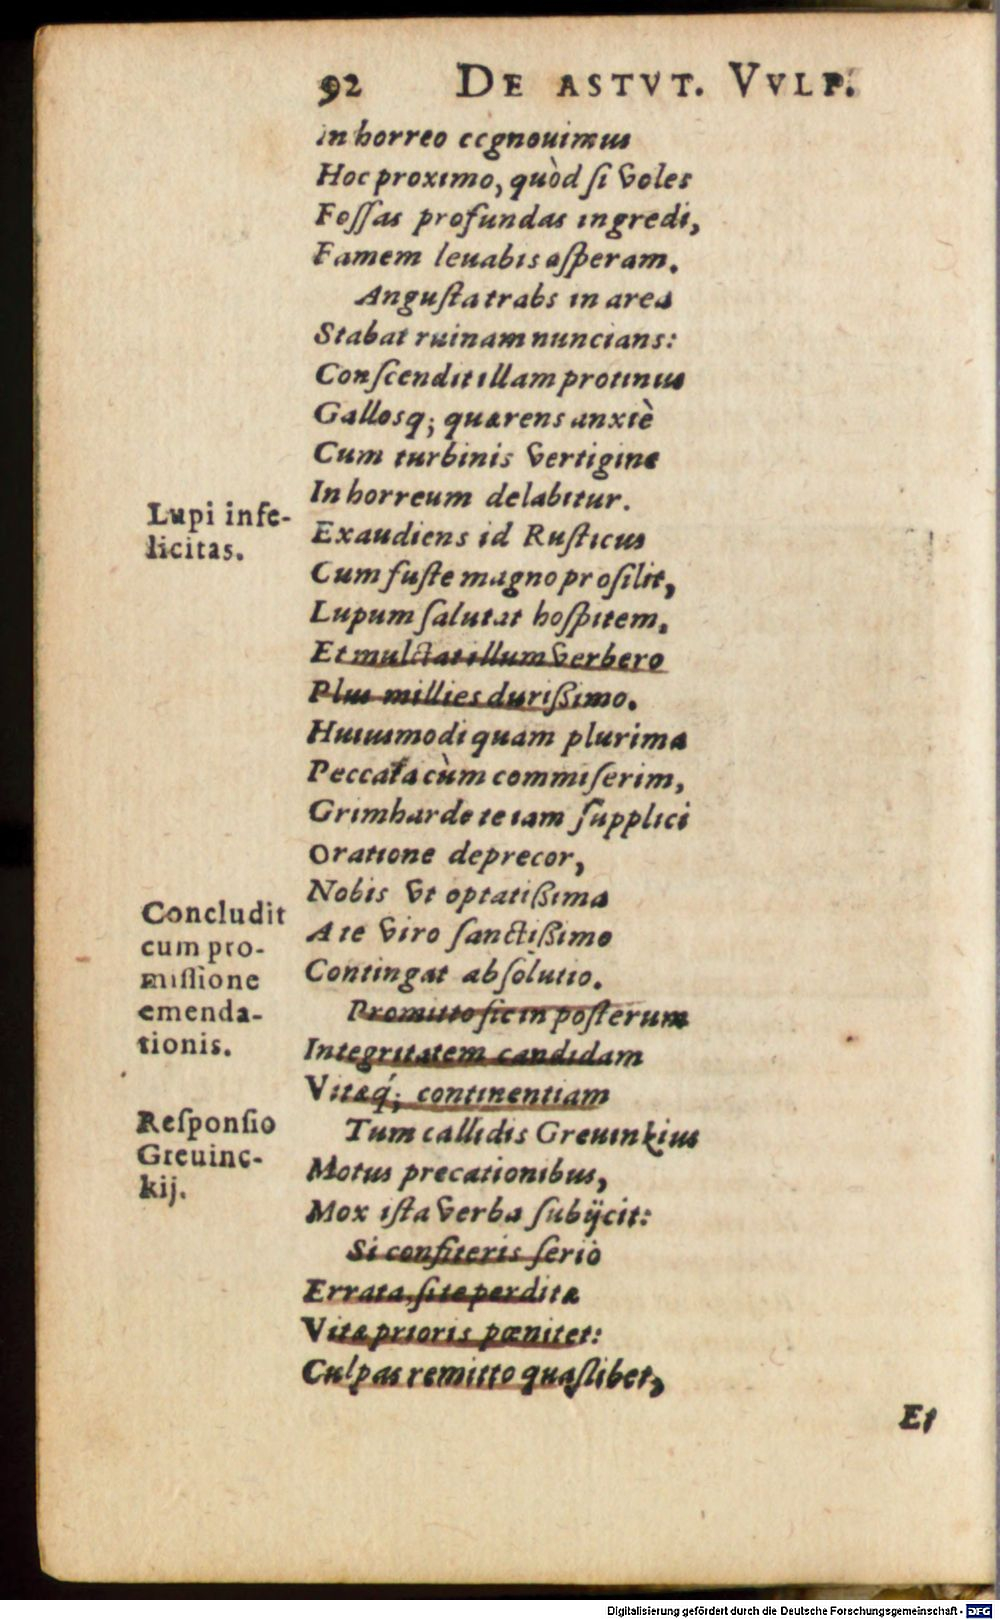 92 DE ASTVT. VVLP.
in horreo ccgnouimus
Hoc proximo, quòd ſi voles
Foſſas profundas ingredi,
Famem leuabis aſperam.
Anguſta trabs in area
Stabat ruinam nuncians:
Conſcendit illam protinus
Gallosq; quærens anxiè
Cum turbinis vertigine
In horreum delabitur.
Lupi infe-
licitas.
Exaudiens id Ruſticus
Cum fuſte magno proſilit,
Lupum ſalutat hoſpitem,
Et mulctat illum verbero
Plus millies durißimo.
Huiuſmodi quam plurima
Peccata cùm commiſerim,
Grimharde te iam ſupplici
Oratione deprecor,
Nobis vt optatißima
A te viro ſanctißimo
Contingat abſolutio.
Concludit
cum pro-
miſſione
emenda-
tionis.
Promitto ſic in poſterum
Integritatem candidam
Vitæq́; continentiam
Reſponſio
Greuinc-
kij.
Tum callidis Greuinkius
Motus precationibus,
Mox iſta verba ſubijcit:
Si confiteris ſeriò
Errata, ſi te perditæ
Vitæ prioris pœnitet:
Culpas remitto quaſlibet,
Et
Digitalisierung gefördert durch die Deutsche Forschungsgemeinschaft - DFG